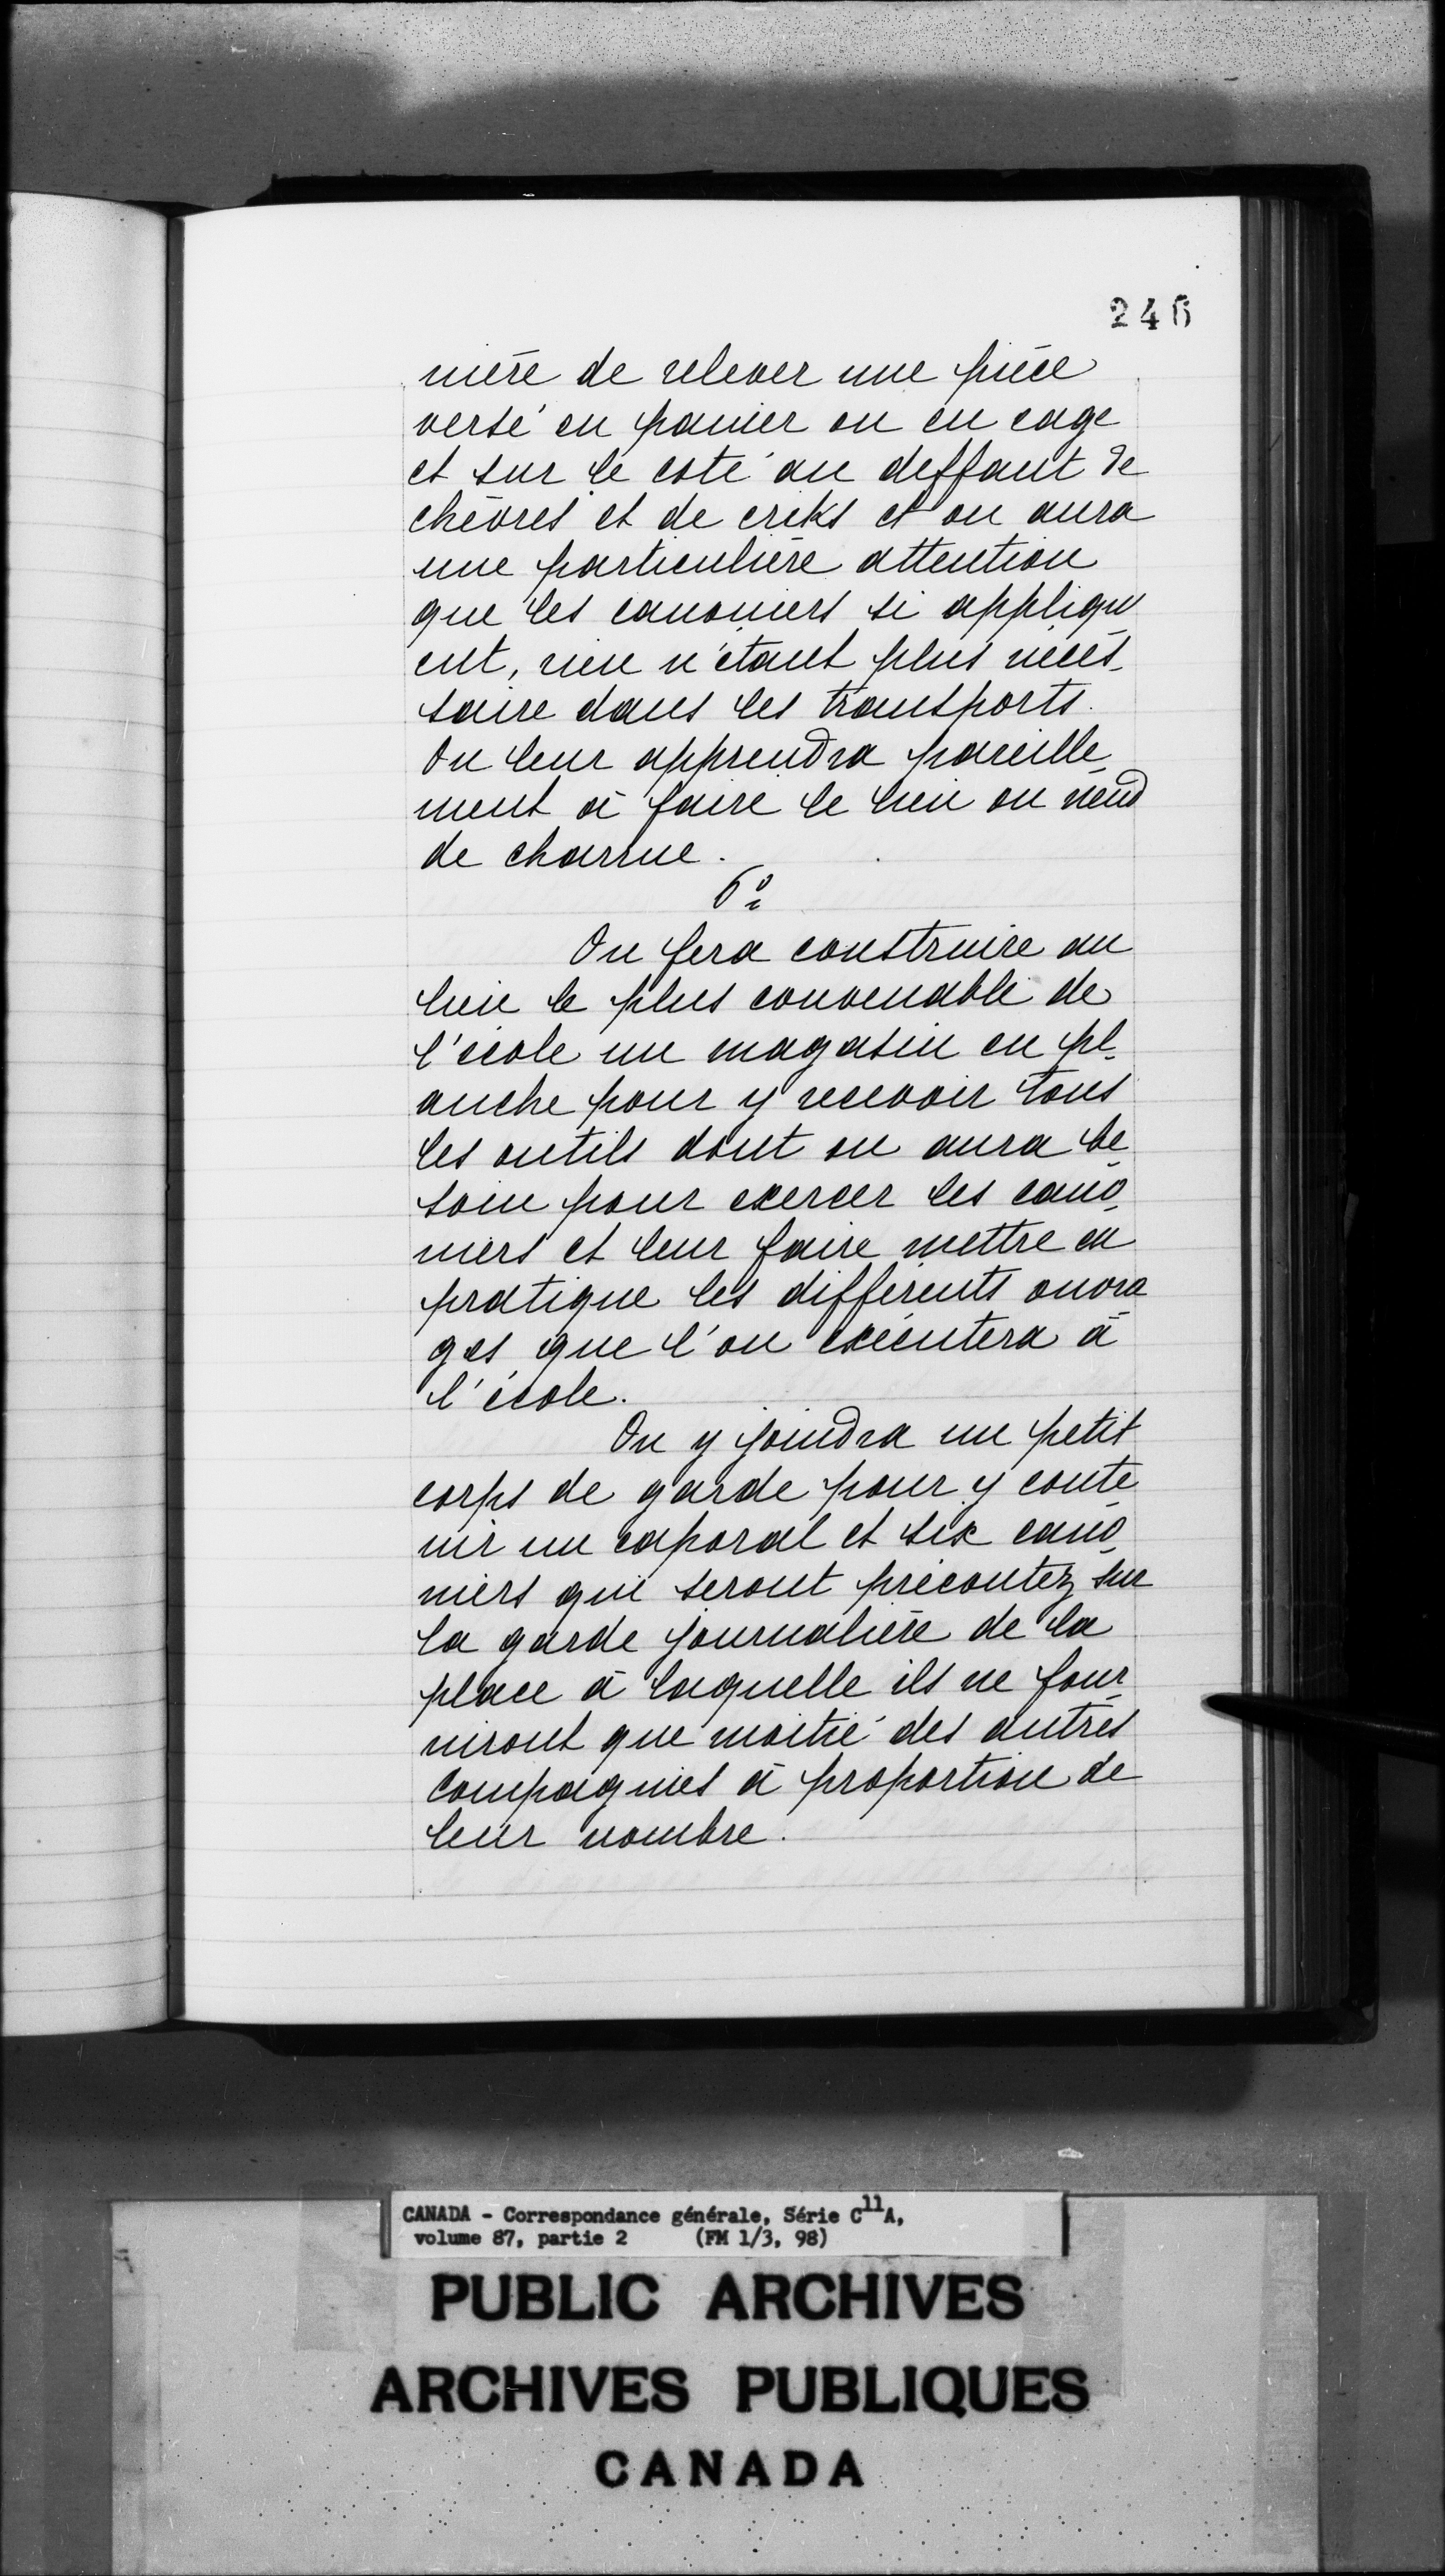 246
nière de relever une pièce
versé en panier ou en cage
et sur le coté au deffaut de
chèvres et de criks et on aura
une particulière attention
que les canoniers si appliqu
ent, rien n'étant plus néces-
saire dans les transports.
On leur apprendra pareille-
ment à faire le lien ou neud
de charrue.
6o
On fera construire au
lieu le plus convenable de
l'école un magasin en pl-
anche pour y recevoir tous
les outils dont on aura be-
soin pour exercer les cano-
niers et leur faire mettre en
pratique les différents ouvra
ges que l'on exécutera à
l'école.
On y joindra un petit
corps de garde pour y conte-
nir un caporal et six cano-
niers qui seront précontez sur
la garde journalière de la
place à laquelle ils ne four-
niront que moitié des autres
compagnies à proportion de
leur nombre.
CANADA - Correspondance générale, Série C11A,
volume 87, partie 2 (FM 1/3, 98)
PUBLIC ARCHIVES
ARCHIVES PUBLIQUES
CANADA